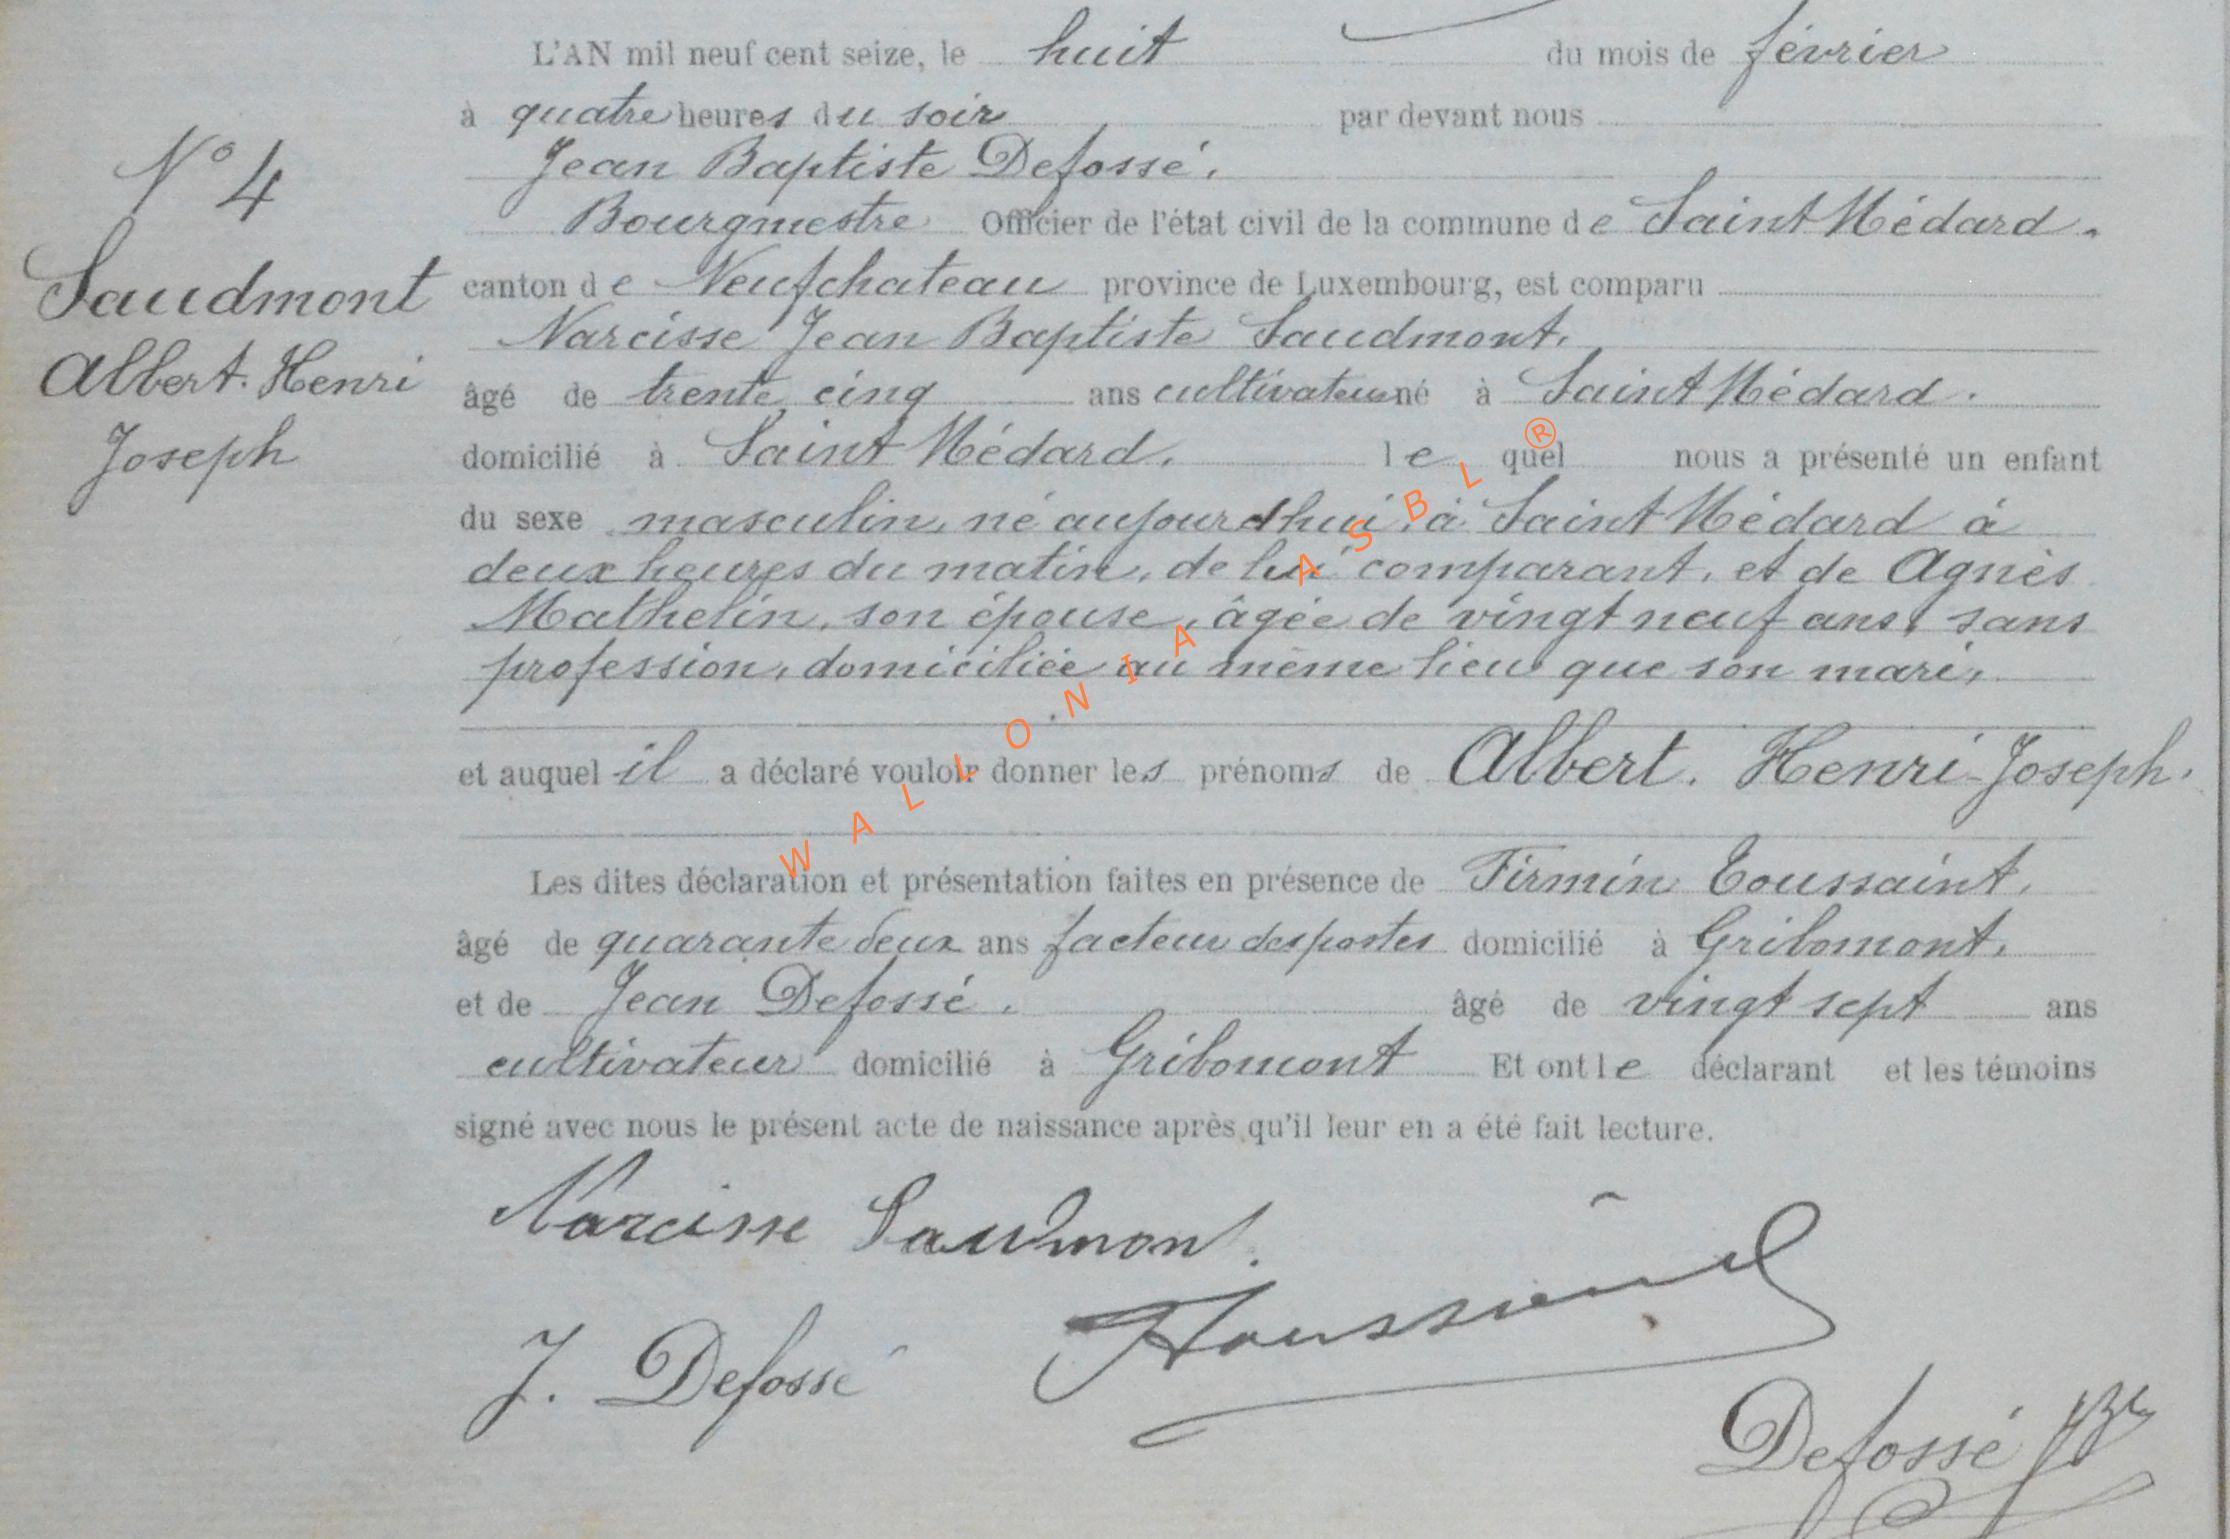 N° 4
Saudmont
Albert. Henri
Joseph
L'AN mil neuf cent seize, le huit du mois de février
à quatre heures du soir par devant nous
Jean Baptiste Defossé,
Bourgmestre Officier de l'état civil de la commune de Saint Médard.
canton de Neufchateau province de Luxembourg, est comparu
Narcisse Jean Baptiste Saudmont,
âgé de trente cinq ans cultivateur né à Saint Médard.
domicilié à Saint Médard, lequel nous a présenté un enfant
du sexe masculin, né aujourdhui, à Saint Médard à
deux heures du matin, de lui comparant, et de Agnès
Mathelin, son épouse, âgée de vingt neuf ans, sans
profession, domiciliée au même lieu que son mari,
et auquel il a déclaré vouloir donner les prénoms de Albert. Henri-Joseph.
Les dites déclaration et présentation faites en présence de Firmin Toussaint,
âgé de quarante deux ans facteur des postes domicilié à Gribomont,
et de Jean Defossé. âgé de vingt sept ans
cultivateur domicilié à Gribomont Et ont le déclarant et les témoins
signé avec nous le présent acte de naissance après qu'il leur en a été fait lecture.
Narcisse Saudmont.
J. Defossé
Defossé JB
WALLONIA ASBL ®